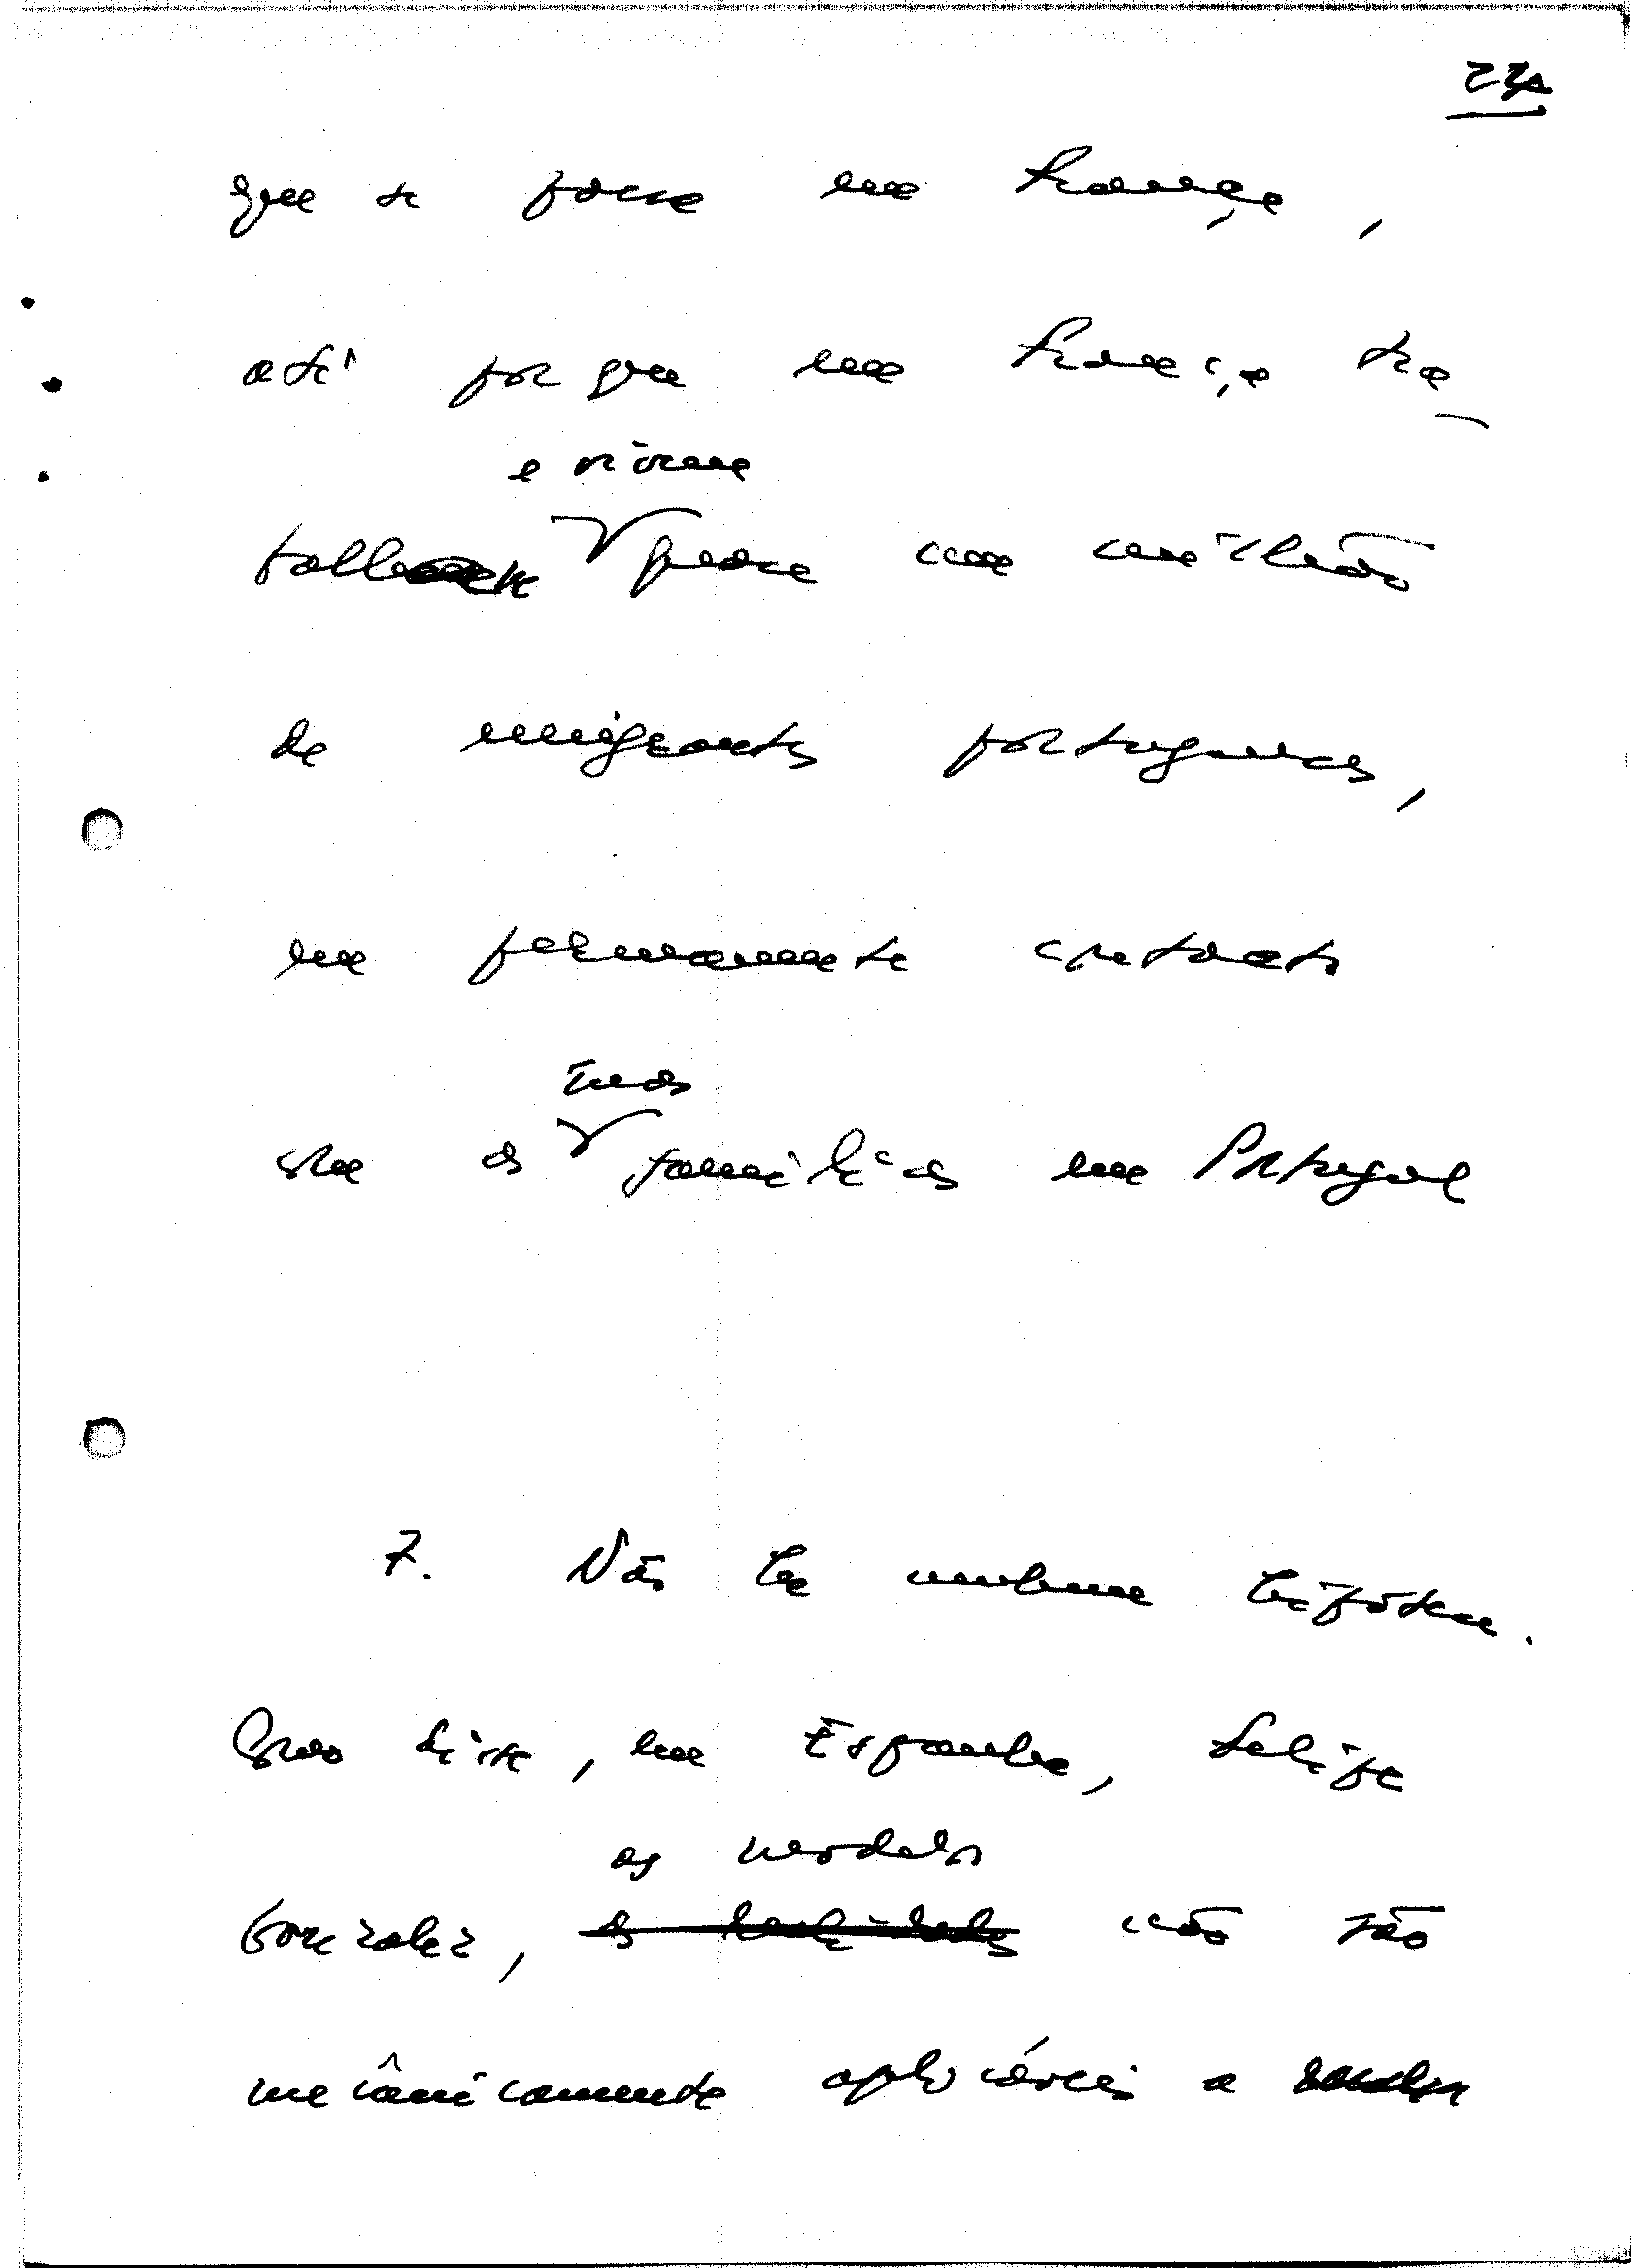 que se passa em França,
até porque em França tra-
e vivem
balham quase um milhão
de emigrantes portugueses,
em permanente contacto
suas
com as famílias em Portugal
7. Não há nenhuma hipótese.
Como disse, em Espanha, Felipe
os modelos
Gonzalez, não são
mecânicamente aplicáveis a